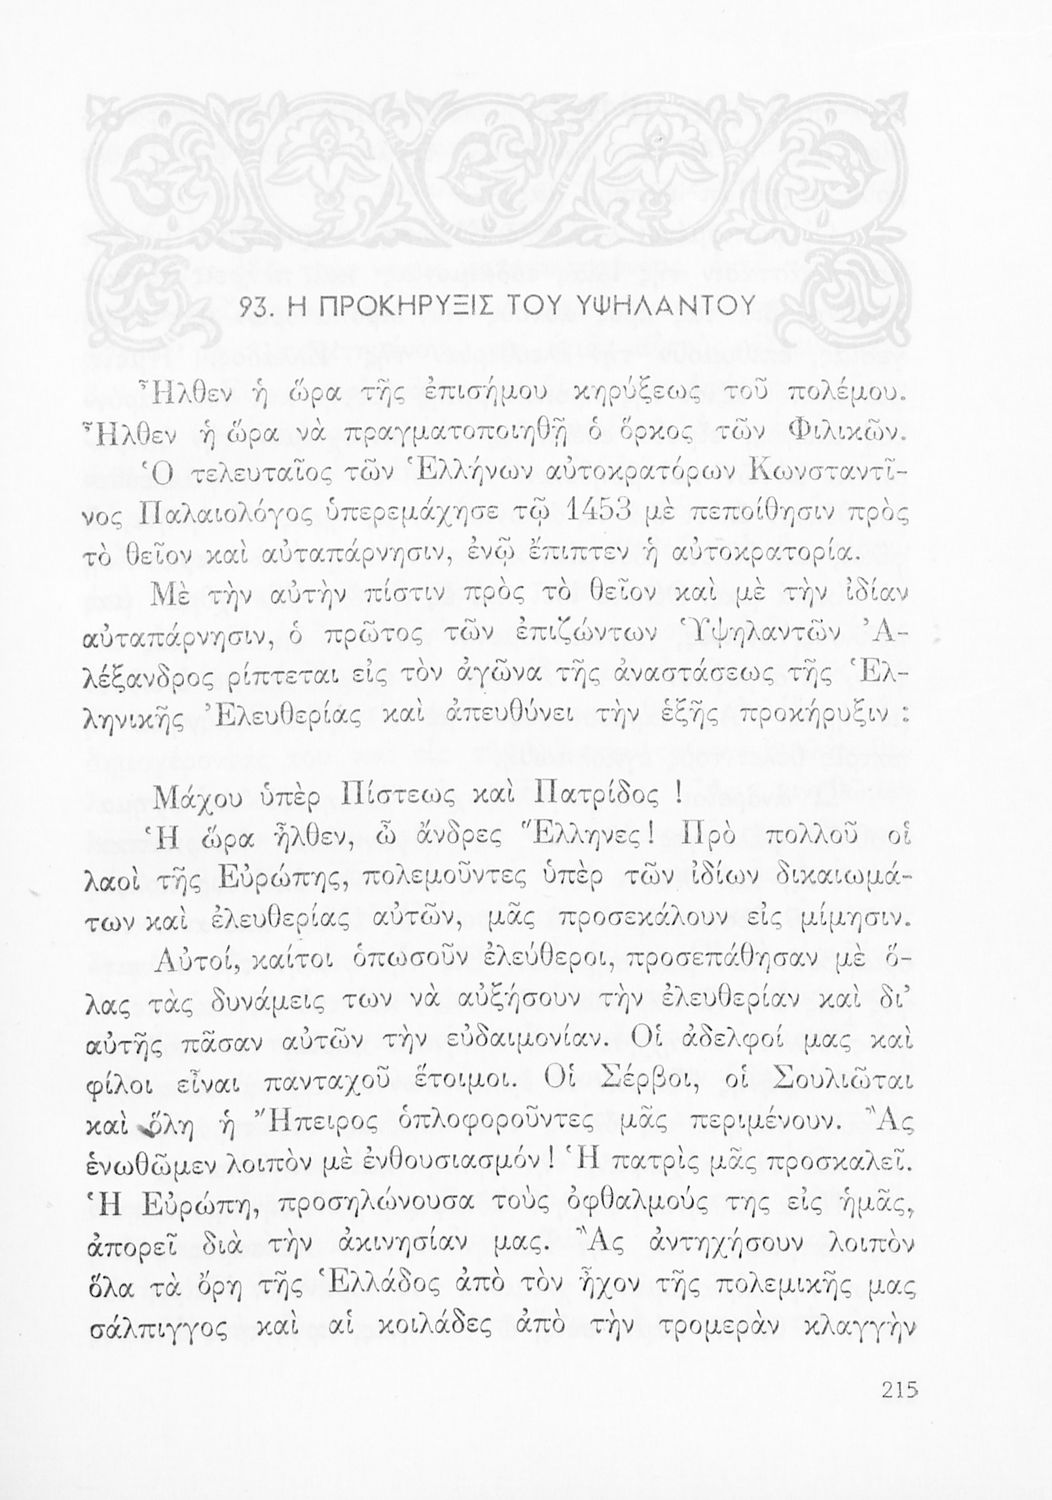 93. Η ΠΡΟΚΗΡΥΞΙΣ ΤΟΥ ΥΨΗΛΑΝΤΟΥ
Ἦλθεν ἡ ὥρα τῆς ἐπισήμου κηρύξεως τοῦ πολέμου.
Ἦλθεν ἡ ὥρα νὰ πραγματοποιηθῇ ὁ ὅρκος τῶν Φιλικῶν.
Ὁ τελευταῖος τῶν Ἑλλήνων αὐτοκρατόρων Κωνσταντῖ-
νος Παλαιολόγος ὑπερεμάχησε τῷ 1453 μὲ πεποίθησιν πρὸς
τὸ θεῖον καὶ αὐταπάρνησιν, ἐνῷ ἔπιπτεν ἡ αὐτοκρατορία.
Μὲ τὴν αὐτὴν πίστιν πρὸς τὸ θεῖον καὶ μὲ τὴν ἰδίαν
αὐταπάρνησιν, ὁ πρῶτος τῶν ἐπιζώντων Ὑψηλαντῶν Ἀ-
λέξανδρος ρίπτεται εἰς τὸν ἀγῶνα τῆς ἀναστάσεως τῆς Ἑλ-
ληνικῆς Ἐλευθερίας καὶ ἀπευθύνει τὴν ἑξῆς προκήρυξιν :
Μάχου ὑπὲρ Πίστεως καὶ Πατρίδος !
Ἡ ὥρα ἦλθεν, ὦ ἄνδρες Ἕλληνες! Πρὸ πολλοῦ οἱ
λαοὶ τῆς Εὐρώπης, πολεμοῦντες ὑπὲρ τῶν ἰδίων δικαιωμά-
των καὶ ἐλευθερίας αὐτῶν, μᾶς προσεκάλουν εἰς μίμησιν.
Αὐτοί, καίτοι ὁπωσοῦν ἐλεύθεροι, προσεπάθησαν μὲ ὅ-
λας τὰς δυνάμεις των νὰ αὐξήσουν τὴν ἐλευθερίαν καὶ δι’
αὐτῆς πᾶσαν αὐτῶν τὴν εὐδαιμονίαν. Οἱ ἀδελφοί μας καὶ
φίλοι εἶναι πανταχοῦ ἕτοιμοι. Οἱ Σέρβοι, οἱ Σουλιῶται
καὶ ὅλη ἡ Ἤπειρος ὁπλοφοροῦντες μᾶς περιμένουν. Ἂς
ἑνωθῶμεν λοιπὸν μὲ ἐνθουσιασμόν! Ἡ πατρὶς μᾶς προσκαλεῖ.
Ἡ Εὐρώπη, προσηλώνουσα τοὺς ὀφθαλμούς της εἰς ἡμᾶς,
ἀπορεῖ διὰ τὴν ἀκινησίαν μας. Ἂς ἀντηχήσουν λοιπὸν
ὅλα τὰ ὄρη τῆς Ἑλλάδος ἀπὸ τὸν ἦχον τῆς πολεμικῆς μας
σάλπιγγος καὶ αἱ κοιλάδες ἀπὸ τὴν τρομερὰν κλαγγὴν
215